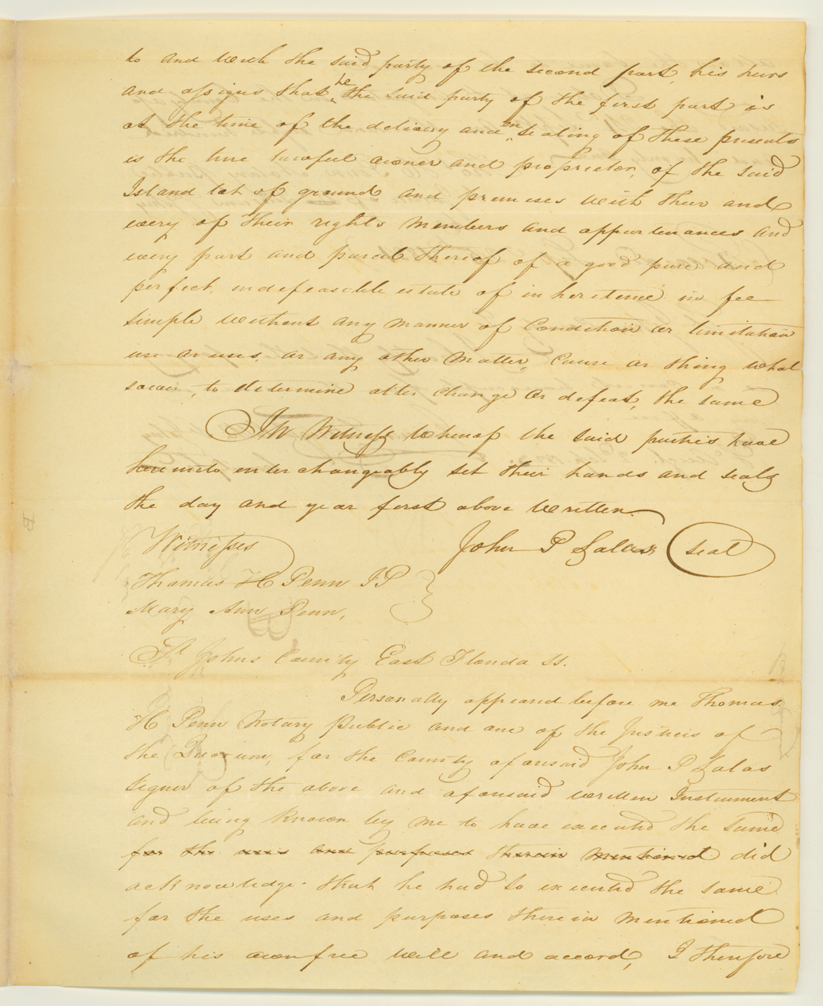 to and with the said party of the second part, his heirs
and assigns that he the said party of the first part is
at the time of the delivery and ensealing of these presents
is the true lawful owner and proprietor, of the said
Island lot of ground and premises with their and
every of their rights members and appurtenances and
every part and parcel thereof of a good pure and
perfect, indefeasible estate of inheritence in fee
simple without any manner of Condition or limitation
use or uses, or any other Matter, Cause or thing what
soever, to determine alter change or defeat, the same
In Witness whereof the said parties have
hereunto interchangeably set their hands and seals
the day and year first above written
Witnesses John P Salas seal
Thomas H Penn JP
Mary Ann Penn,
St Johns County East Florida SS.
Personally appeared before me Thomas
H Penn Notary Public and one of the Justices of
the Quorum, for the County aforesaid John P Salas
signer of the above and aforesaid written Instrument
and being Known by me to have executed the same
for the uses and purposes therein mentioned did
acknowledge that he had so executed the same
for the uses and purposes therein mentioned
of his own free will and accord, I therefore